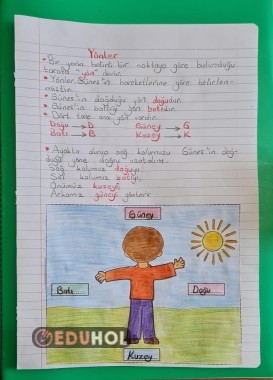 Yönler
• Bir yerin belirli bir noktaya göre bulunduğu
tarafa "yön" denir.
• Yönler Güneş'in hareketlerine göre belirlen-
mektedir.
• Güneş'in doğduğu yön doğudur.
• Güneş'in battığı yön batıdır.
• Dört tane ana yön vardır.
Doğu → D Güney → G
Batı → B Kuzey → K
• Ayakta durup sağ kolumuzu Güneş'in doğ-
duğu yöne doğru uzatalım.
Sağ kolumuz doğuyu,
Sol kolumuz batıyı,
Önümüz kuzeyi,
Arkamız güneyi gösterir.
Güney
Batı
Doğu
Kuzey
EDUHOL